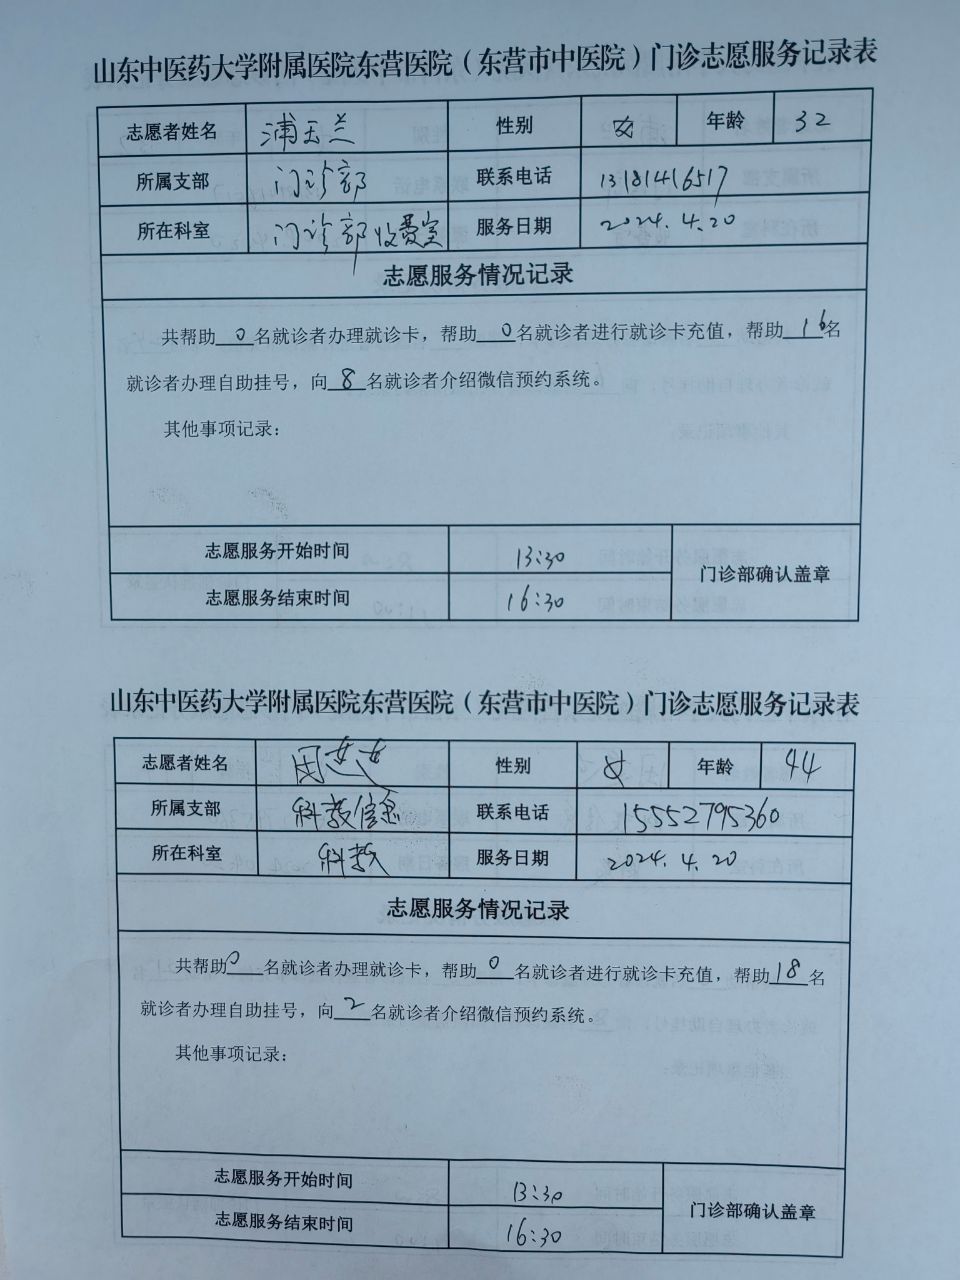 山东中医药大学附属医院东营医院（东营市中医院）门诊志愿服务记录表
志愿者姓名 浦玉兰 性别 女 年龄 32
所属支部 门诊部 联系电话 13181416517
所在科室 门诊部收费室 服务日期 2024.4.20
志愿服务情况记录
共帮助0名就诊者办理就诊卡，帮助0名就诊者进行就诊卡充值，帮助16名
就诊者办理自助挂号，向8名就诊者介绍微信预约系统。
其他事项记录：
志愿服务开始时间 13:30
门诊部确认盖章
志愿服务结束时间 16:30
山东中医药大学附属医院东营医院（东营市中医院）门诊志愿服务记录表
志愿者姓名 性别 女 年龄 44
所属支部 科教信 联系电话 15552795360
所在科室 科教 服务日期 2024.4.20
志愿服务情况记录
共帮助0名就诊者办理就诊卡，帮助0名就诊者进行就诊卡充值，帮助18名
就诊者办理自助挂号，向2名就诊者介绍微信预约系统。
其他事项记录：
志愿服务开始时间 13:30
门诊部确认盖章
志愿服务结束时间 16:30